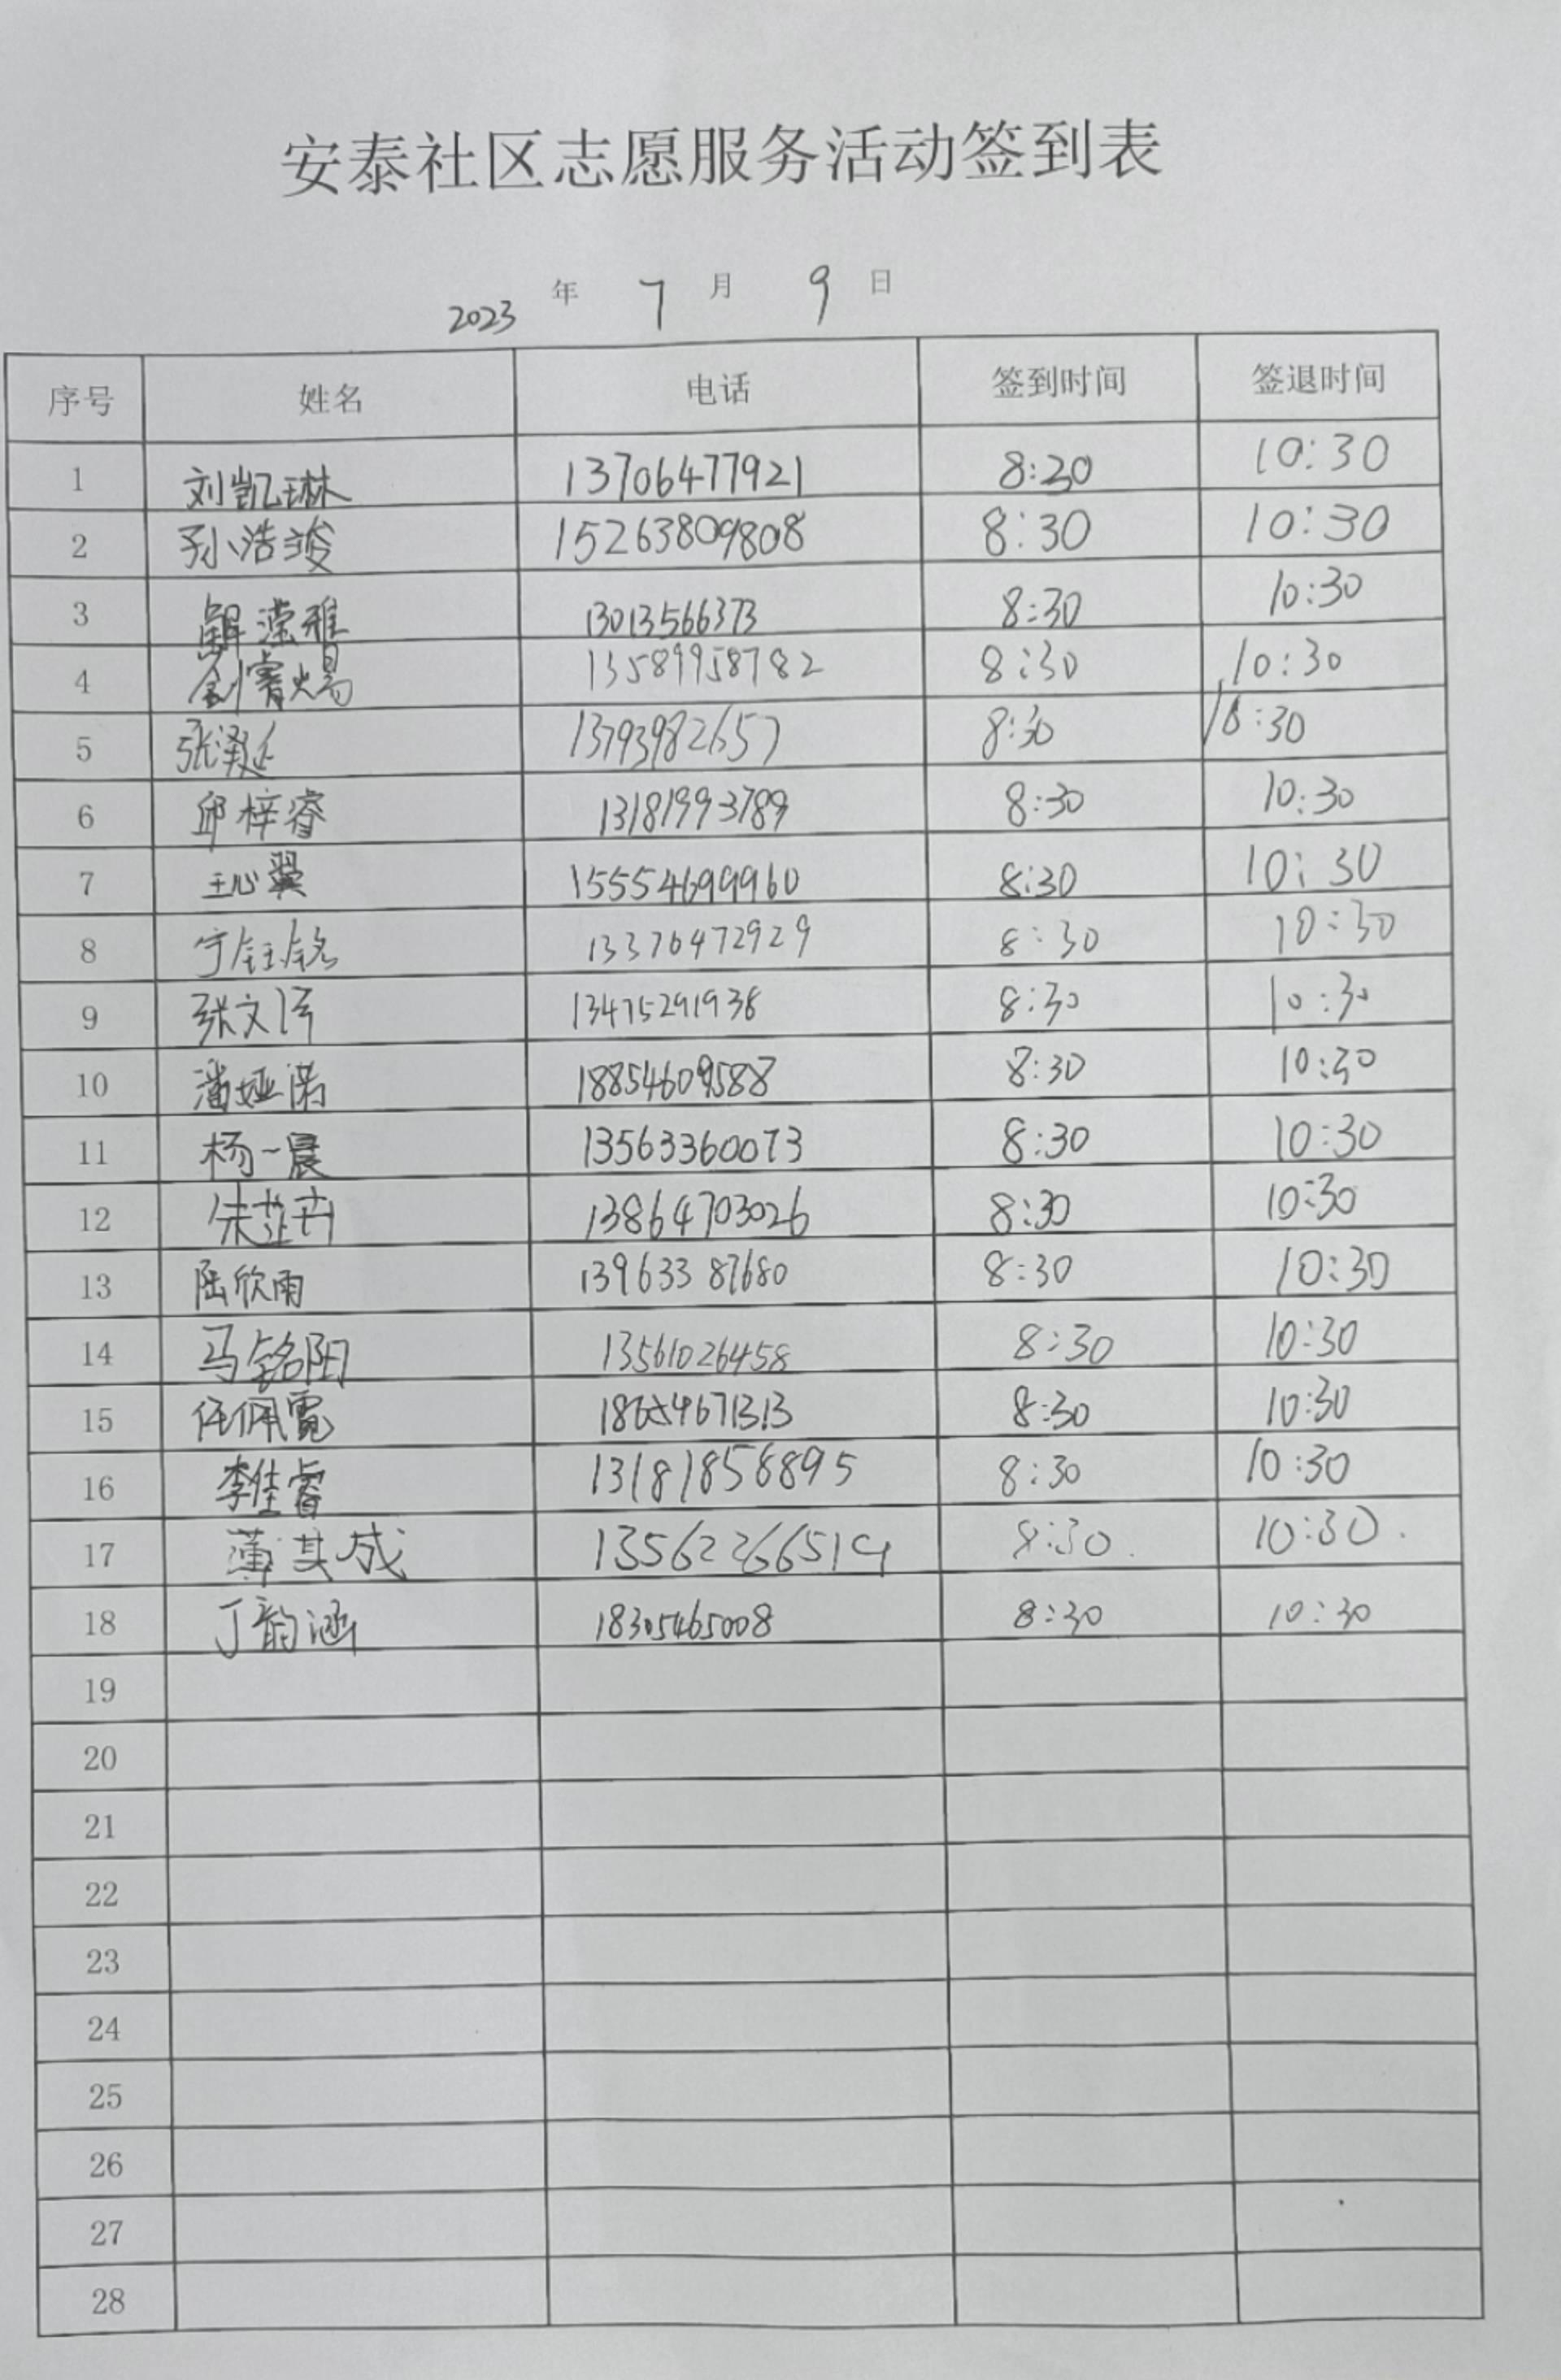 安泰社区志愿服务活动签到表
2023 年 7 月 9 日
序号 姓名 电话 签到时间 签退时间
1 刘凯琳 13706477921 8:20 10:30
2 孙浩竣 15263809808 8:30 10:30
3 解滢雅 13013566373 8:30 10:30
4 刘睿炀 13589958782 8:30 10:30
5 张泽延 13793982657 8:30 10:30
6 邱梓睿 13181993789 8:30 10:30
7 王心翼 15554699960 8:30 10:30
8 宁钰铭 13376472929 8:30 10:30
9 张文泽 13475291938 8:30 10:30
10 潘娅诺 18854609588 8:30 10:30
11 杨一晨 13563360073 8:30 10:30
12 朱芷卉 13864703026 8:30 10:30
13 陆欣雨 13963387680 8:30 10:30
14 马铭阳 13561026458 8:30 10:30
15 任佩霓 8:30 10:30
16 李佳睿 13181856895 8:30 10:30
17 薄其成 13562266519 8:30. 10:30.
18 丁韵涵 18305465008 8:30 10:30
19
20
21
22
23
24
25
26
27
28